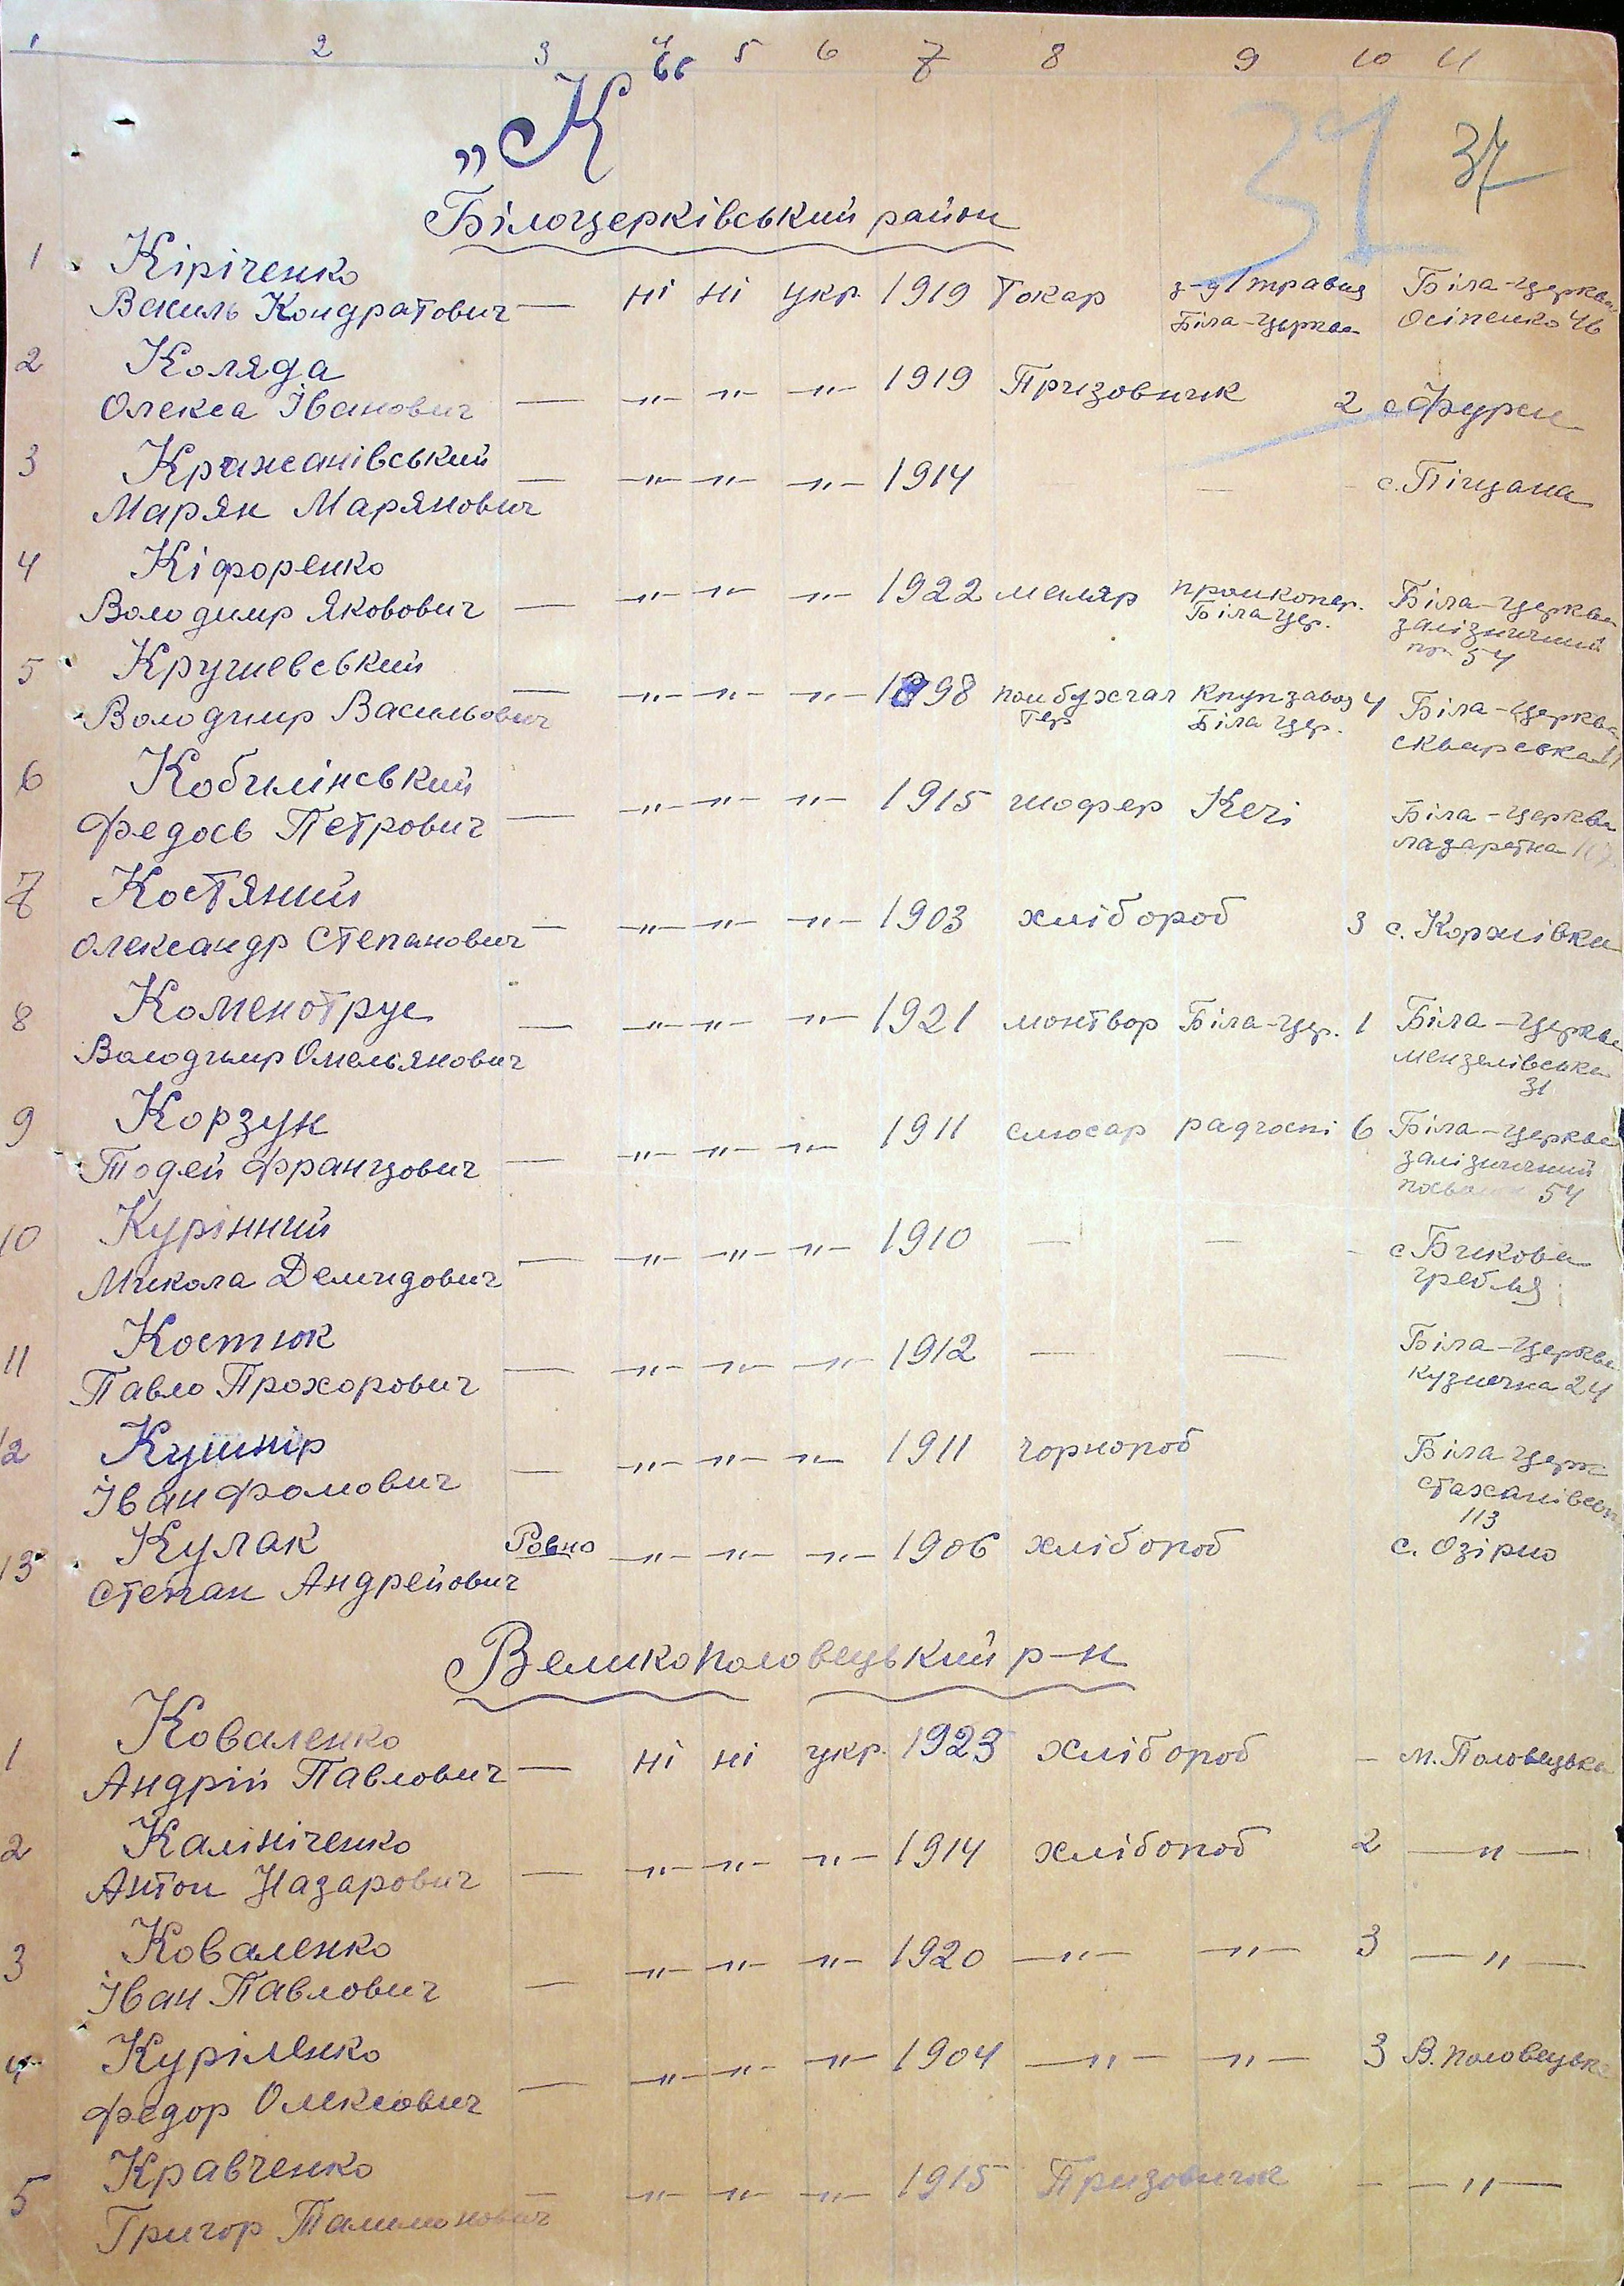 1 2 3 4 5 6 7 8 9 10 11
„К“
32 37
Білоцерківський район
1 Кіріченко
Василь Кондратович — ні ні укр. 1919 Токар з-д 1 травня Біла-Церква
Біла-Церква Осіпенко 46
2 Коляда
Олекса Іванович — —„— —„— —„— 1919 Призовник 2 с Фурси
3 Кражанівський
Марян Марянович — —„— —„— —„— 1914 — — с. Піщана
4 Кіфоренко
Володимир Якович — —„— —„— —„— 1922 маляр промкопер. Біла-Церква
Біла Цер. залізничний
54
5 Крушевський
Володимир Васильович — —„— —„— —„— 1898 бухгал Біла-Церква
тер Біла Цер. 4 сквирська
6 Кобилінський
Федось Петрович — —„— —„— —„— 1915 шофер Кечі Біла-Церква
лазаретна
7 Костяний
Олександр Степанович — —„— —„— —„— 1903 хлібороб 3 с. Коржівка
8 Коменотрус
Володимир Омельянович — —„— —„— —„— 1921 монтьор Біла-Цер. 1 Біла-Церква
мензелівська
31
9 Корзун
Тодей Францович — —„— —„— —„— 1911 слюсар радгоспі 6 Біла-Церква
залізничний
54
10 Курінний
Микола Демидович — —„— —„— —„— 1910 — — - с Бикова
гребля
11 Костюк
Павло Прохорович — —„— —„— —„— 1912 — — Біла-Церква
Кузнечна 24
12 Кушнір
Іван Фомович — —„— —„— —„— 1911 чорнороб Біла Церк
стаханівськ
113
13 Кулак Ровно —„— —„— —„— 1906 хлібороб с. Озірно
Степан Андрейович
Великополовецький р-н
1 Коваленко
Андрій Павлович — ні ні укр. 1923 хлібороб - м. Половецьке
2 Калініченко
Антон Назарович — —„— —„— —„— 1914 хлібороб 2 —„—
3 Коваленко
Іван Павлович — —„— —„— —„— 1920 —„— —„— 3 —„—
4 Куріленко
Федор Олексіович — —„— —„— —„— 1904 —„— —„— 3 В. половецьке
5 Кравченко
Григор — —„— —„— —„— 1915 Призовник - —„—